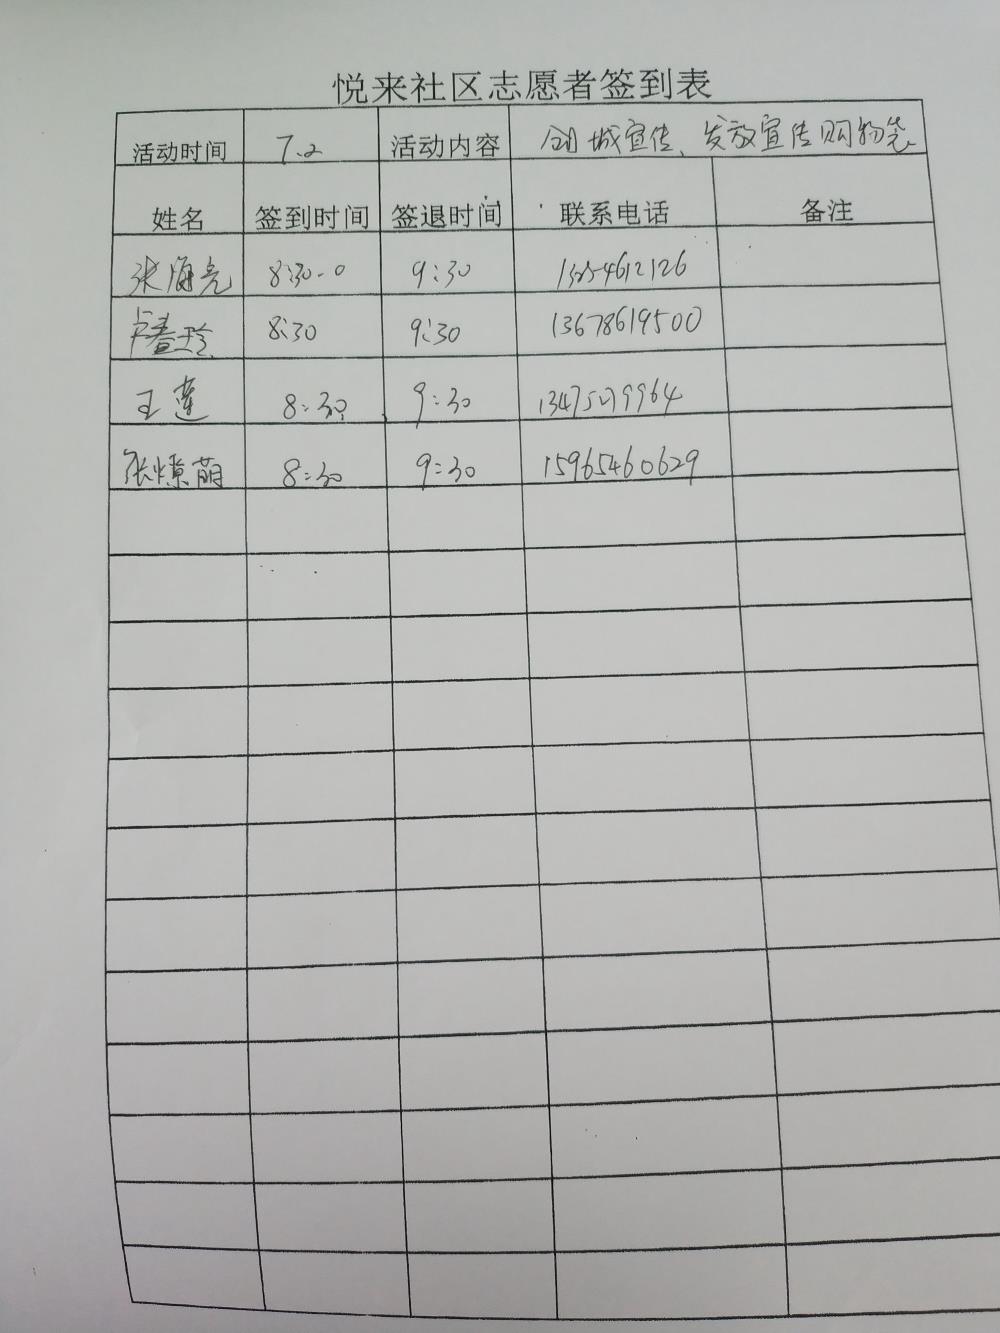 悦来社区志愿者签到表
活动时间 7.2 活动内容 创城宣传、发放宣传购物袋
姓名 签到时间 签退时间 联系电话 备注
张海亮 8:30 9:30
卢春玲 8:30 9:30 13678619500
王莲 8:30 9:30
张燎萌 8:30 9:30 15965460629